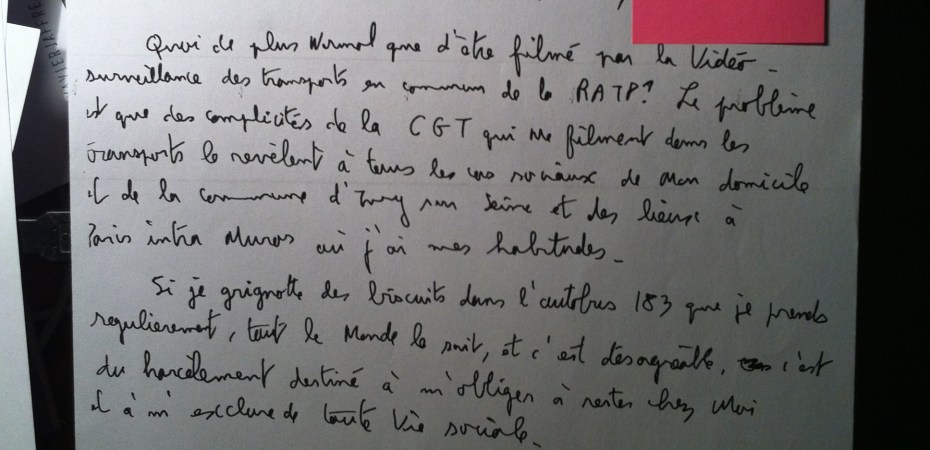 Quoi de plus Normal que d'être filmé par la Vidéo-
surveillance des transports en commun de la RATP? Le problème
est que des complicités de la CGT qui me filment dans les
transports le revèlent à tous les cas sociaux de mon domicile
et de la commune d'Ivry sur Seine et des lieux à
Paris intra Muros où j'ai mes habitudes.
Si je grignotte des biscuits dans l'autobus 183 que je prends
regulierement, tout le Monde le sait, et c'est désagréable, c'est
du harcèlement destiné à m'obliger à rester chez Moi
et à m'exclure de toute Vie sociale.